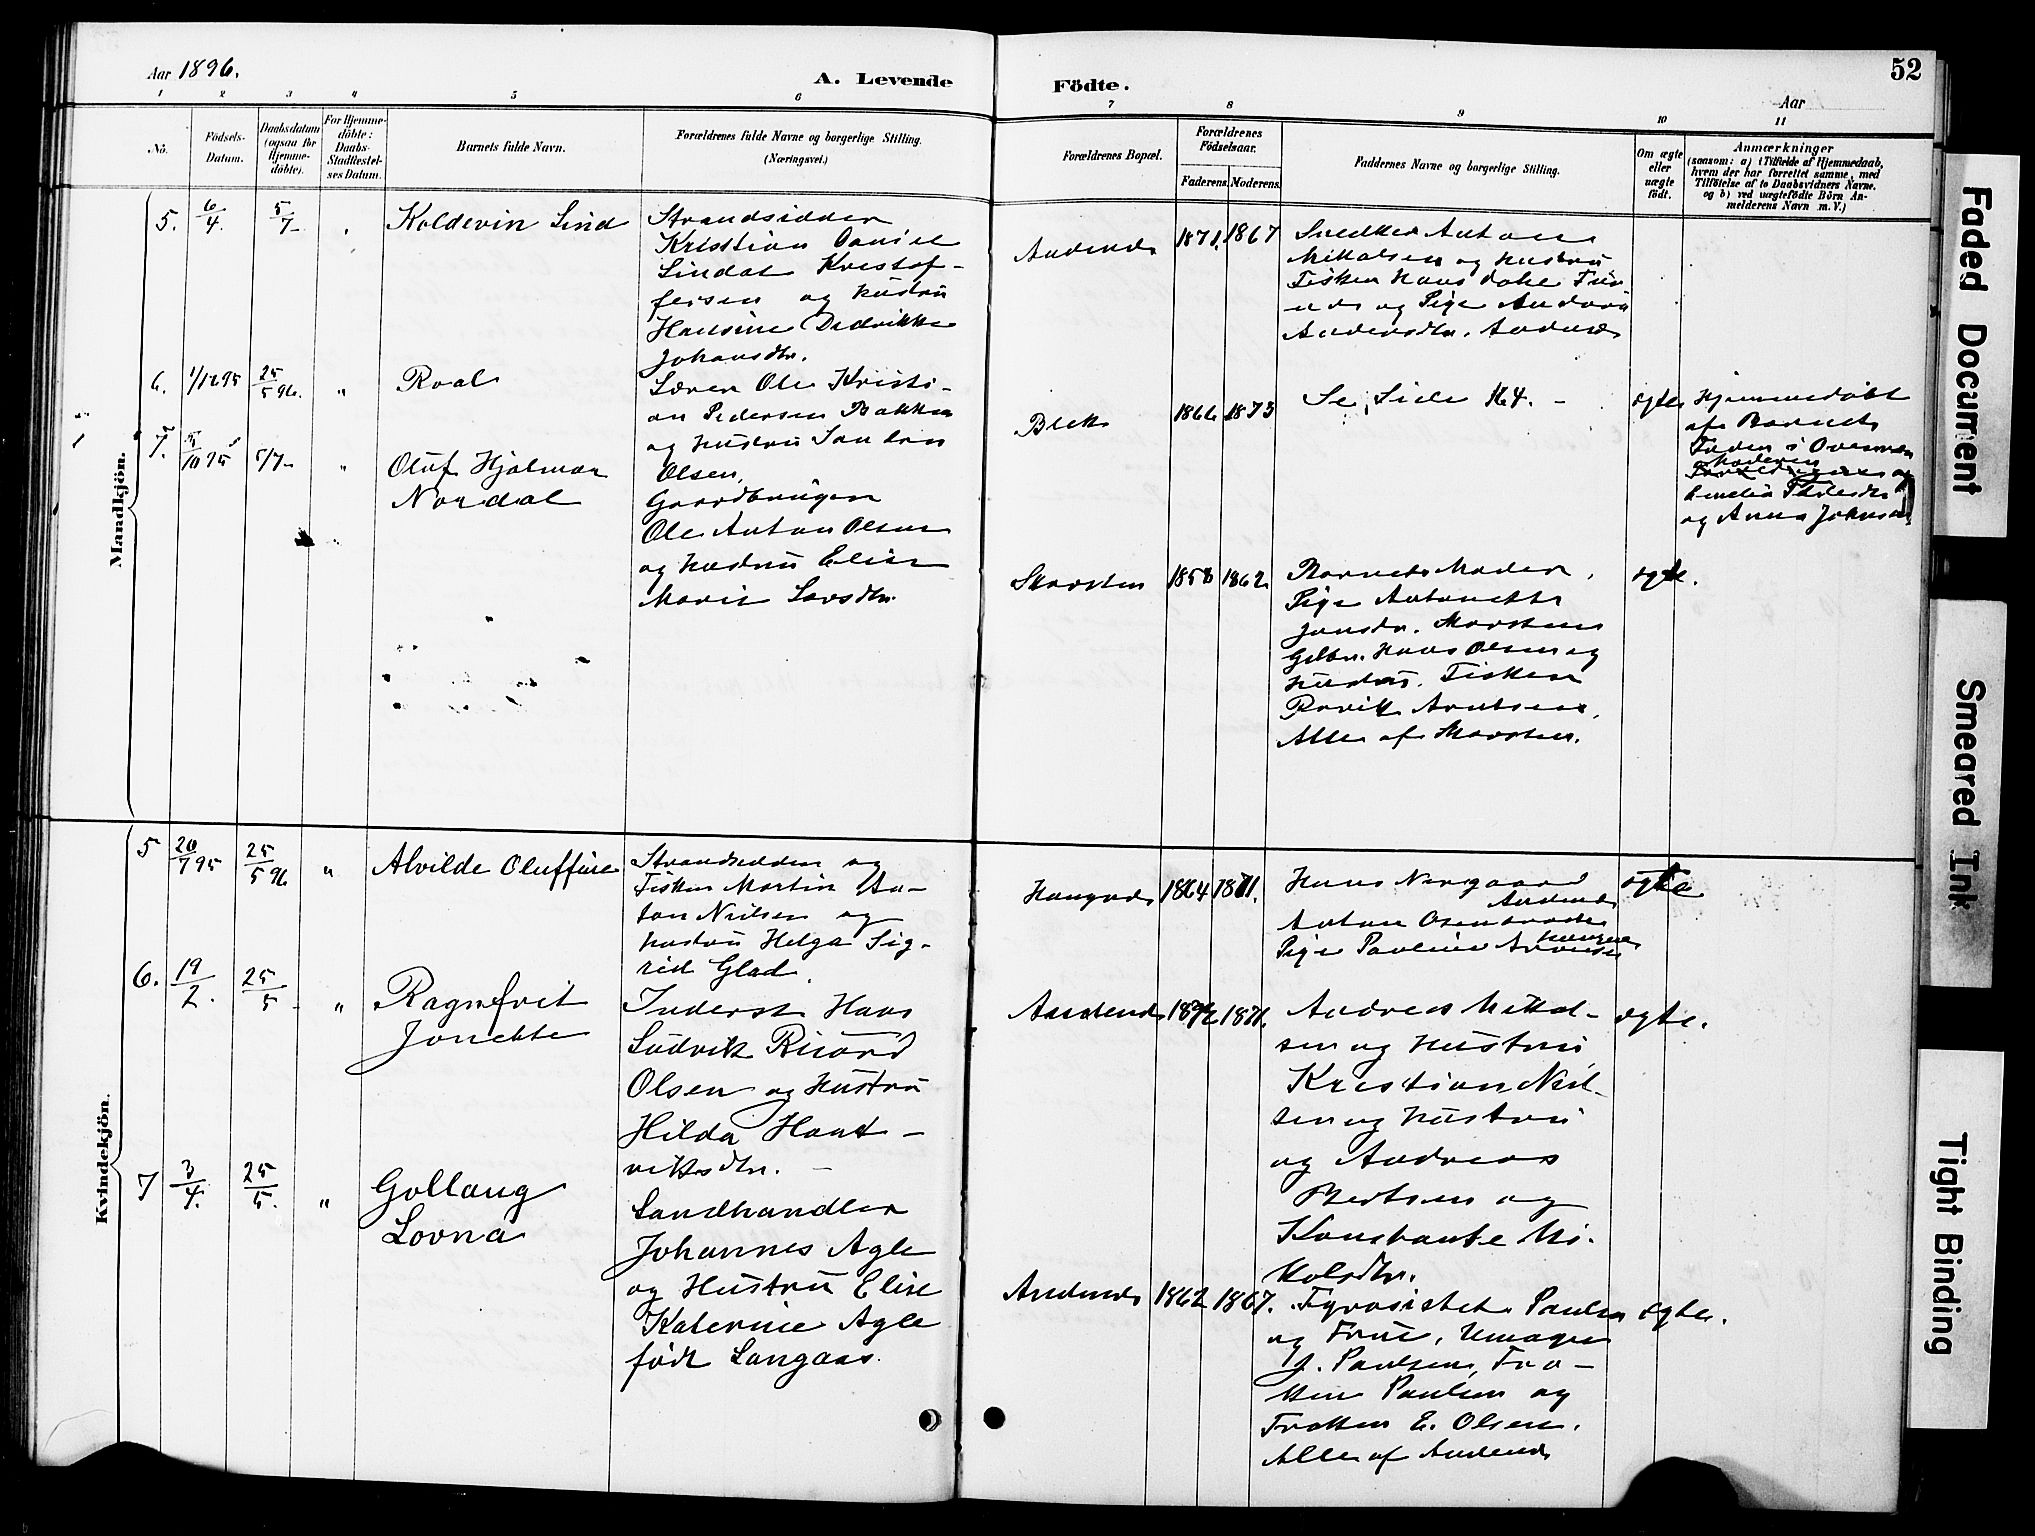 Aar 1896.
A. Levende
Födte.
Aar
52
1 2 3 4 5 6 7 8 9 10 11
No.
Födsels-
Datum.
Daabsdatum
(ogsaa for
Hjemme-
döbte).
For Hjemme-
döbte:
Daabs-
Stadfæstel-
ses Datum.
Barnets fulde Navn.
Forældrenes fulde Navne og borgerlige Stilling.
(Næringsvei.)
Forældrenes Bopæl.
Forældrenes
Födselsaar.
Faderens.
Moderens.
Faddernes Navne og borgerlige Stilling.
Om ægte
eller
uægte
födt.
Anmærkninger
(saasom: a) i Tilfælde af Hjemmedaab,
hvem der har forrettet samme, med
Tilföielse af to Daabsvidners Navne.
og b) ved uægtefödte Börn An-
melderens Navn m. V.)
Mandkjön.
5. 6/4. 5/7 "
Koldevin Lind
Strandsidder
Kristian Daniel
Lindal Kristof-
fersen og Hustru
Hansine Didrikke
Johansdtr.
Andenes
1871. 1867
Snedker Anton
Mikkalsen og Hustru
Fisker Hans
og Pige Andora
Andersdtr. Andenes
6. 1/12 95 25/5 96. "
Roal
Lærer Ole Kristi-
an Pedersen Bakken
og Hustru
Olsen.
Bleik
1866 1873
Se Side 164. -
ægte
Hjemmedøbt
af Barnets
Fader i Overvær
Moderen
og
Amelia
og Anna Johnsen
7. 5/10 95 5/7 "
Oluf Hjalmar
Nordal
Gaardbruger
Ole Anton Olsen
og Hustru Elise
Marie Larsdtr.
Skarsten
1858 1862
Barnets Moder,
Pige Antonette
Jonsdtr. Skarsten
Gdbr. Hans Olsen og
Hustru. Fisker
Rasvik Arntsen,
Alle af Skarsten.
ægte.
Kvindekjön.
5 20/7 95 25/5 96 "
Alvilde Oluffine
Strandsidder og
Fisker Martin An-
ton Nilsen og
Hustru Helga Sig-
rid Glad.
Haugnes
1864 1871.
Hans Norgaard
Andenes
Anton
Pige Pauline
Haugnes
ægte
6. 19/2. 25/5 "
Ragnfrit
Jonette
Inderst Hans
Ludvik Ricard
Olsen og Hustru
Hilda Hart-
viksdtr. -
Andenes
1872 1871.
Andreas Mikkal-
sen og Hustru
Kristian Niel-
sen og Hustru
og Andreas
Bertsen og
Konstanse Ni-
kolsdtr.
ægte.
7 3/4. 25/5. "
Gollaug
Lovna
Landhandler
Johannes Agle
og Hustru Elise
Katerine Agle
født Langaas.
Andenes
1862 1867.
Fyrasistet Paulsen
og Frue,
J. Paulsen, Frø-
ken Paulsen og
Frøken E. Olsen.
Alle af Andenes
ægte.
Faded Document
Smeared Ink
Tight Binding